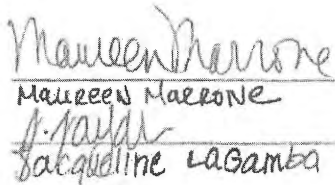 Maureen Marrone
MAUREEN MARRONE
Jacqueline LaGamba